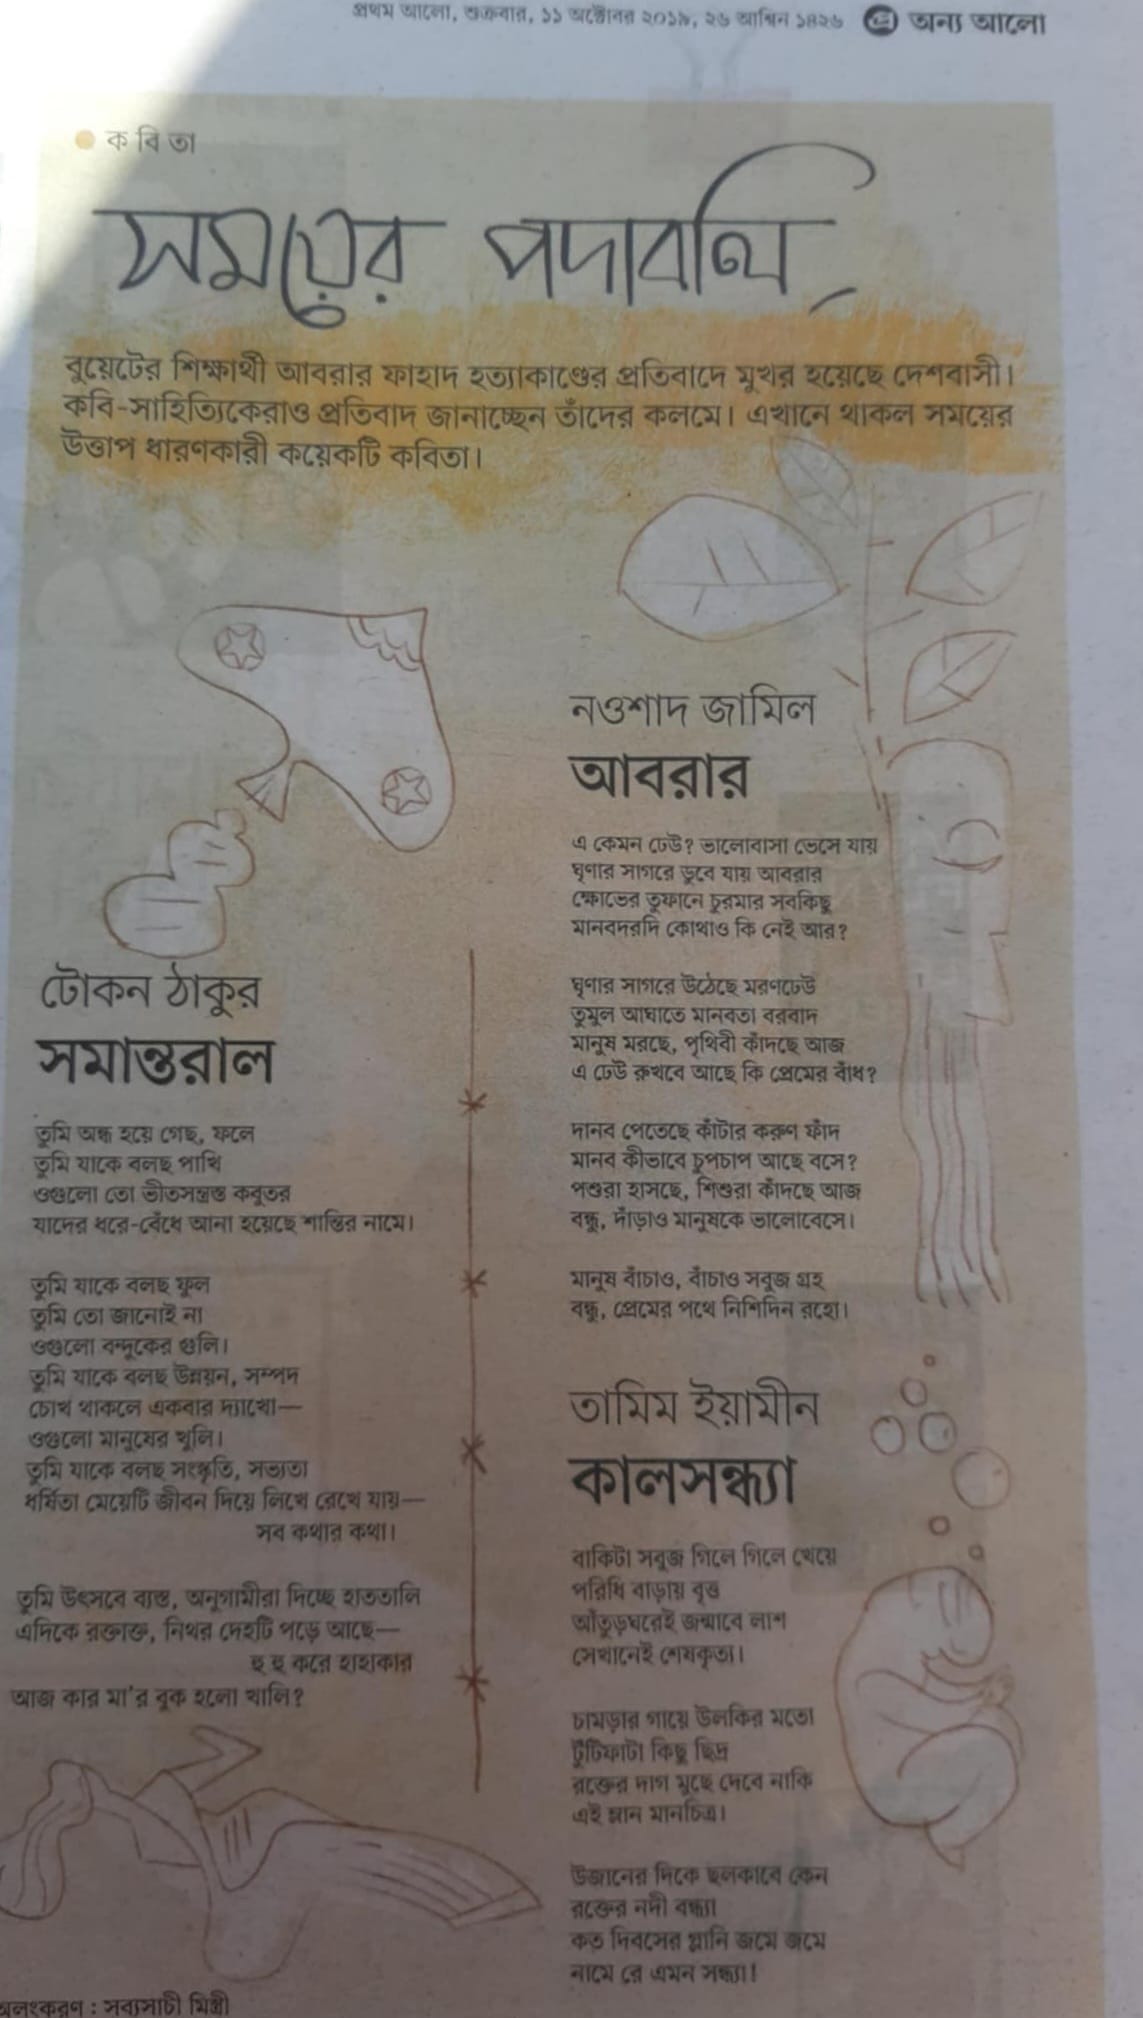 প্রথম আলো, শুক্রবার, ১১ অক্টোবর ২০১৯, ২৬ আশ্বিন ১৪২৬
অন্য আলো
কবিতা
সময়ের পদাবলি
বুয়েটের শিক্ষার্থী আবরার ফাহাদ হত্যাকাণ্ডের প্রতিবাদে মুখর হয়েছে দেশবাসী।
কবি-সাহিত্যিকেরাও প্রতিবাদ জানাচ্ছেন তাঁদের কলমে। এখানে থাকল সময়ের
উত্তাপ ধারণকারী কয়েকটি কবিতা।
টোকন ঠাকুর
সমান্তরাল
তুমি অন্ধ হয়ে গেছ, ফলে
তুমি যাকে বলছ পাখি
ওগুলো তো ভীতসন্ত্রস্ত কবুতর
যাদের ধরে-বেঁধে আনা হয়েছে শান্তির নামে।
তুমি যাকে বলছ ফুল
তুমি তো জানোই না
ওগুলো বন্দুকের গুলি।
তুমি যাকে বলছ উন্নয়ন, সম্পদ
চোখ থাকলে একবার দ্যাখো—
ওগুলো মানুষের খুলি।
তুমি যাকে বলছ সংস্কৃতি, সভ্যতা
ধর্ষিতা মেয়েটি জীবন দিয়ে লিখে রেখে যায়—
সব কথার কথা।
তুমি উৎসবে ব্যস্ত, অনুগামীরা দিচ্ছে হাততালি
এদিকে রক্তাক্ত, নিথর দেহটি পড়ে আছে—
হু হু করে হাহাকার
আজ কার মা'র বুক হলো খালি?
নওশাদ জামিল
আবরার
এ কেমন ঢেউ? ভালোবাসা ভেসে যায়
ঘৃণার সাগরে ডুবে যায় আবরার
ক্ষোভের তুফানে চুরমার সবকিছু
মানবদরদি কোথাও কি নেই আর?
ঘৃণার সাগরে উঠেছে মরণঢেউ
তুমুল আঘাতে মানবতা বরবাদ
মানুষ মরছে, পৃথিবী কাঁদছে আজ
এ ঢেউ রুখবে আছে কি প্রেমের বাঁধ?
দানব পেতেছে কাঁটার করুণ ফাঁদ
মানব কীভাবে চুপচাপ আছে বসে?
পশুরা হাসছে, শিশুরা কাঁদছে আজ
বন্ধু, দাঁড়াও মানুষকে ভালোবেসে।
মানুষ বাঁচাও, বাঁচাও সবুজ গ্রহ
বন্ধু, প্রেমের পথে নিশিদিন রহো।
তামিম ইয়ামীন
কালসন্ধ্যা
বাকিটা সবুজ গিলে গিলে খেয়ে
পরিধি বাড়ায় বৃত্ত
আঁতুড়ঘরেই জন্মাবে লাশ
সেখানেই শেষকৃত্য।
চামড়ার গায়ে উলকির মতো
টুঁটিফাটা কিছু ছিদ্র
রক্তের দাগ মুছে দেবে নাকি
এই ম্লান মানচিত্র।
উজানের দিকে ছলকাবে কেন
রক্তের নদী বন্ধ্যা
কত দিবসের গ্লানি জমে জমে
নামে রে এমন সন্ধ্যা!
অলংকরণ : সব্যসাচী মিস্ত্রী